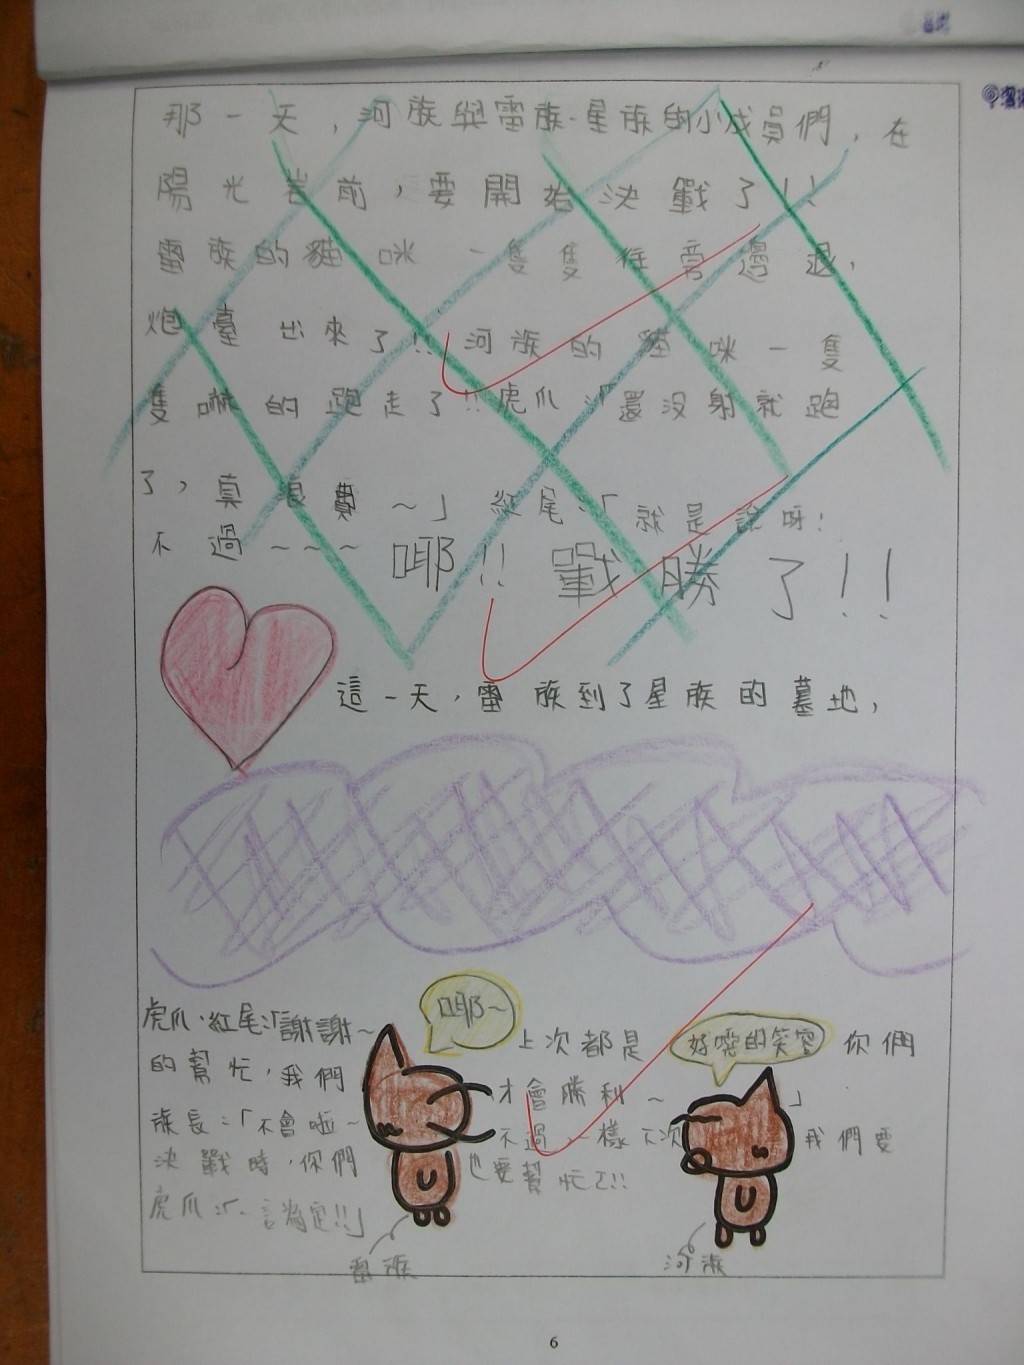 那一天，河族與雷族、星族的小成員們，在
陽光岩前，要開始決戰了！！
雷族的貓咪一隻隻往旁邊退，
炮臺出來了！！河族的貓咪一隻
隻嚇的跑走了！！虎爪：「還沒射就跑
了，真浪費～」紅尾：「就是說呀！
不過～～～耶！！戰勝了！！
這一天，雷族到了星族的墓地，
虎爪、紅尾：「謝謝～
耶～
上次都是
好噁的笑容
你們
的幫忙，我們
才會勝利～
」
族長：「不會啦～
不過，一樣下次
我們要
決戰時，你們
也要幫忙ㄛ！！
虎爪：「一言為定！！」
雷族
河族
6